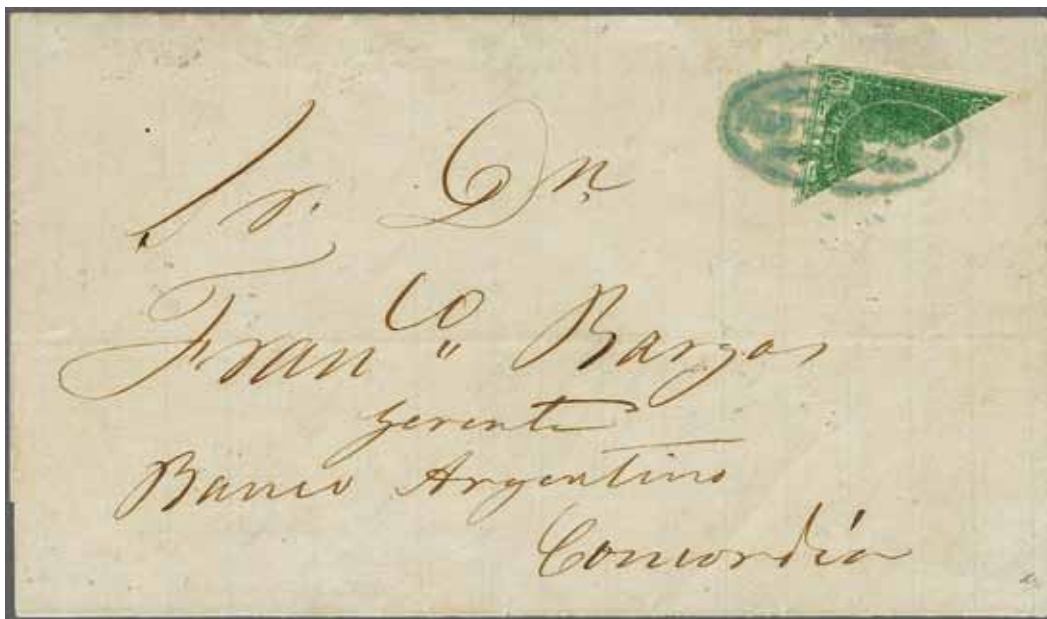 Sr. Dn
Franco Bargas
Gerente
Banco Argentino
Concordia